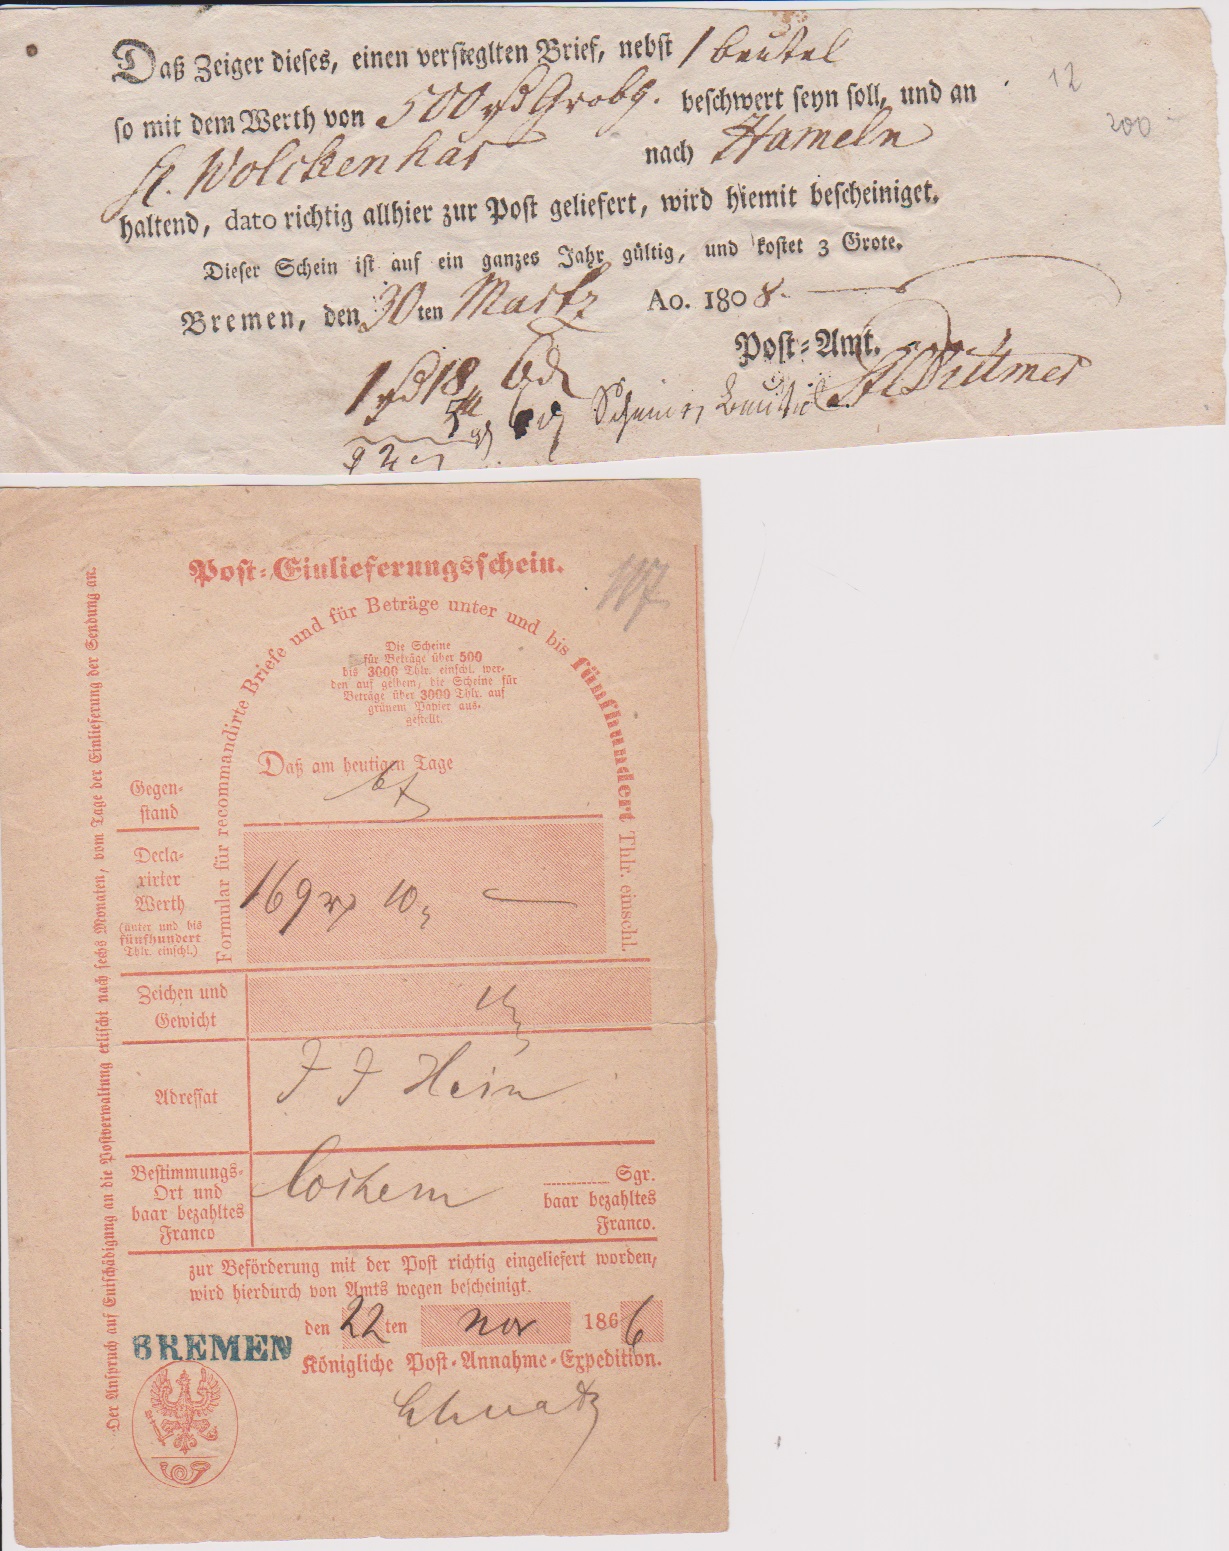 Daß Zeiger dieses, einen versieglten Brief, nebst 1 beutel
so mit dem Werth von 500 Grobg. beschwert seyn soll, und an
Wolckenhar nach Hameln
haltend, dato richtig allhier zur Post geliefert, wird hiemit bescheiniget.
Dieser Schein ist auf ein ganzes Jahr gültig, und kostet 3 Grote.
Bremen, den 30ten Martz Ao. 1808.
Post-Amt.
Dittmer
1 18
12
200
Post-Einlieferungsschein.
117
Formular für recommandirte Briefe und für Beträge unter und bis fünfhundert Thlr. einschl.
Die Scheine
für Beträge über 500
bis 3000 Thlr. einschl. wer-
den auf gelbem, die Scheine für
Beträge über 3000 Thlr. auf
grünem Papier aus-
gestellt.
Daß am heutigen Tage
Gegen-
stand
Decla-
rirter
Werth
(unter und bis
fünfhundert
Thlr. einschl.)
169 10
Zeichen und
Gewicht
Adressat
J J Hein
Bestimmungs-
Ort und
baar bezahltes
Franco
Cochem
Sgr.
baar bezahltes
Franco.
zur Beförderung mit der Post richtig eingeliefert worden,
wird hierdurch von Amts wegen bescheinigt.
den 22ten nov 1866
BREMEN
Königliche Post-Annahme-Expedition.
Der Anspruch auf Entschädigung an die Postverwaltung erlischt nach sechs Monaten, vom Tage der Einlieferung der Sendung an.